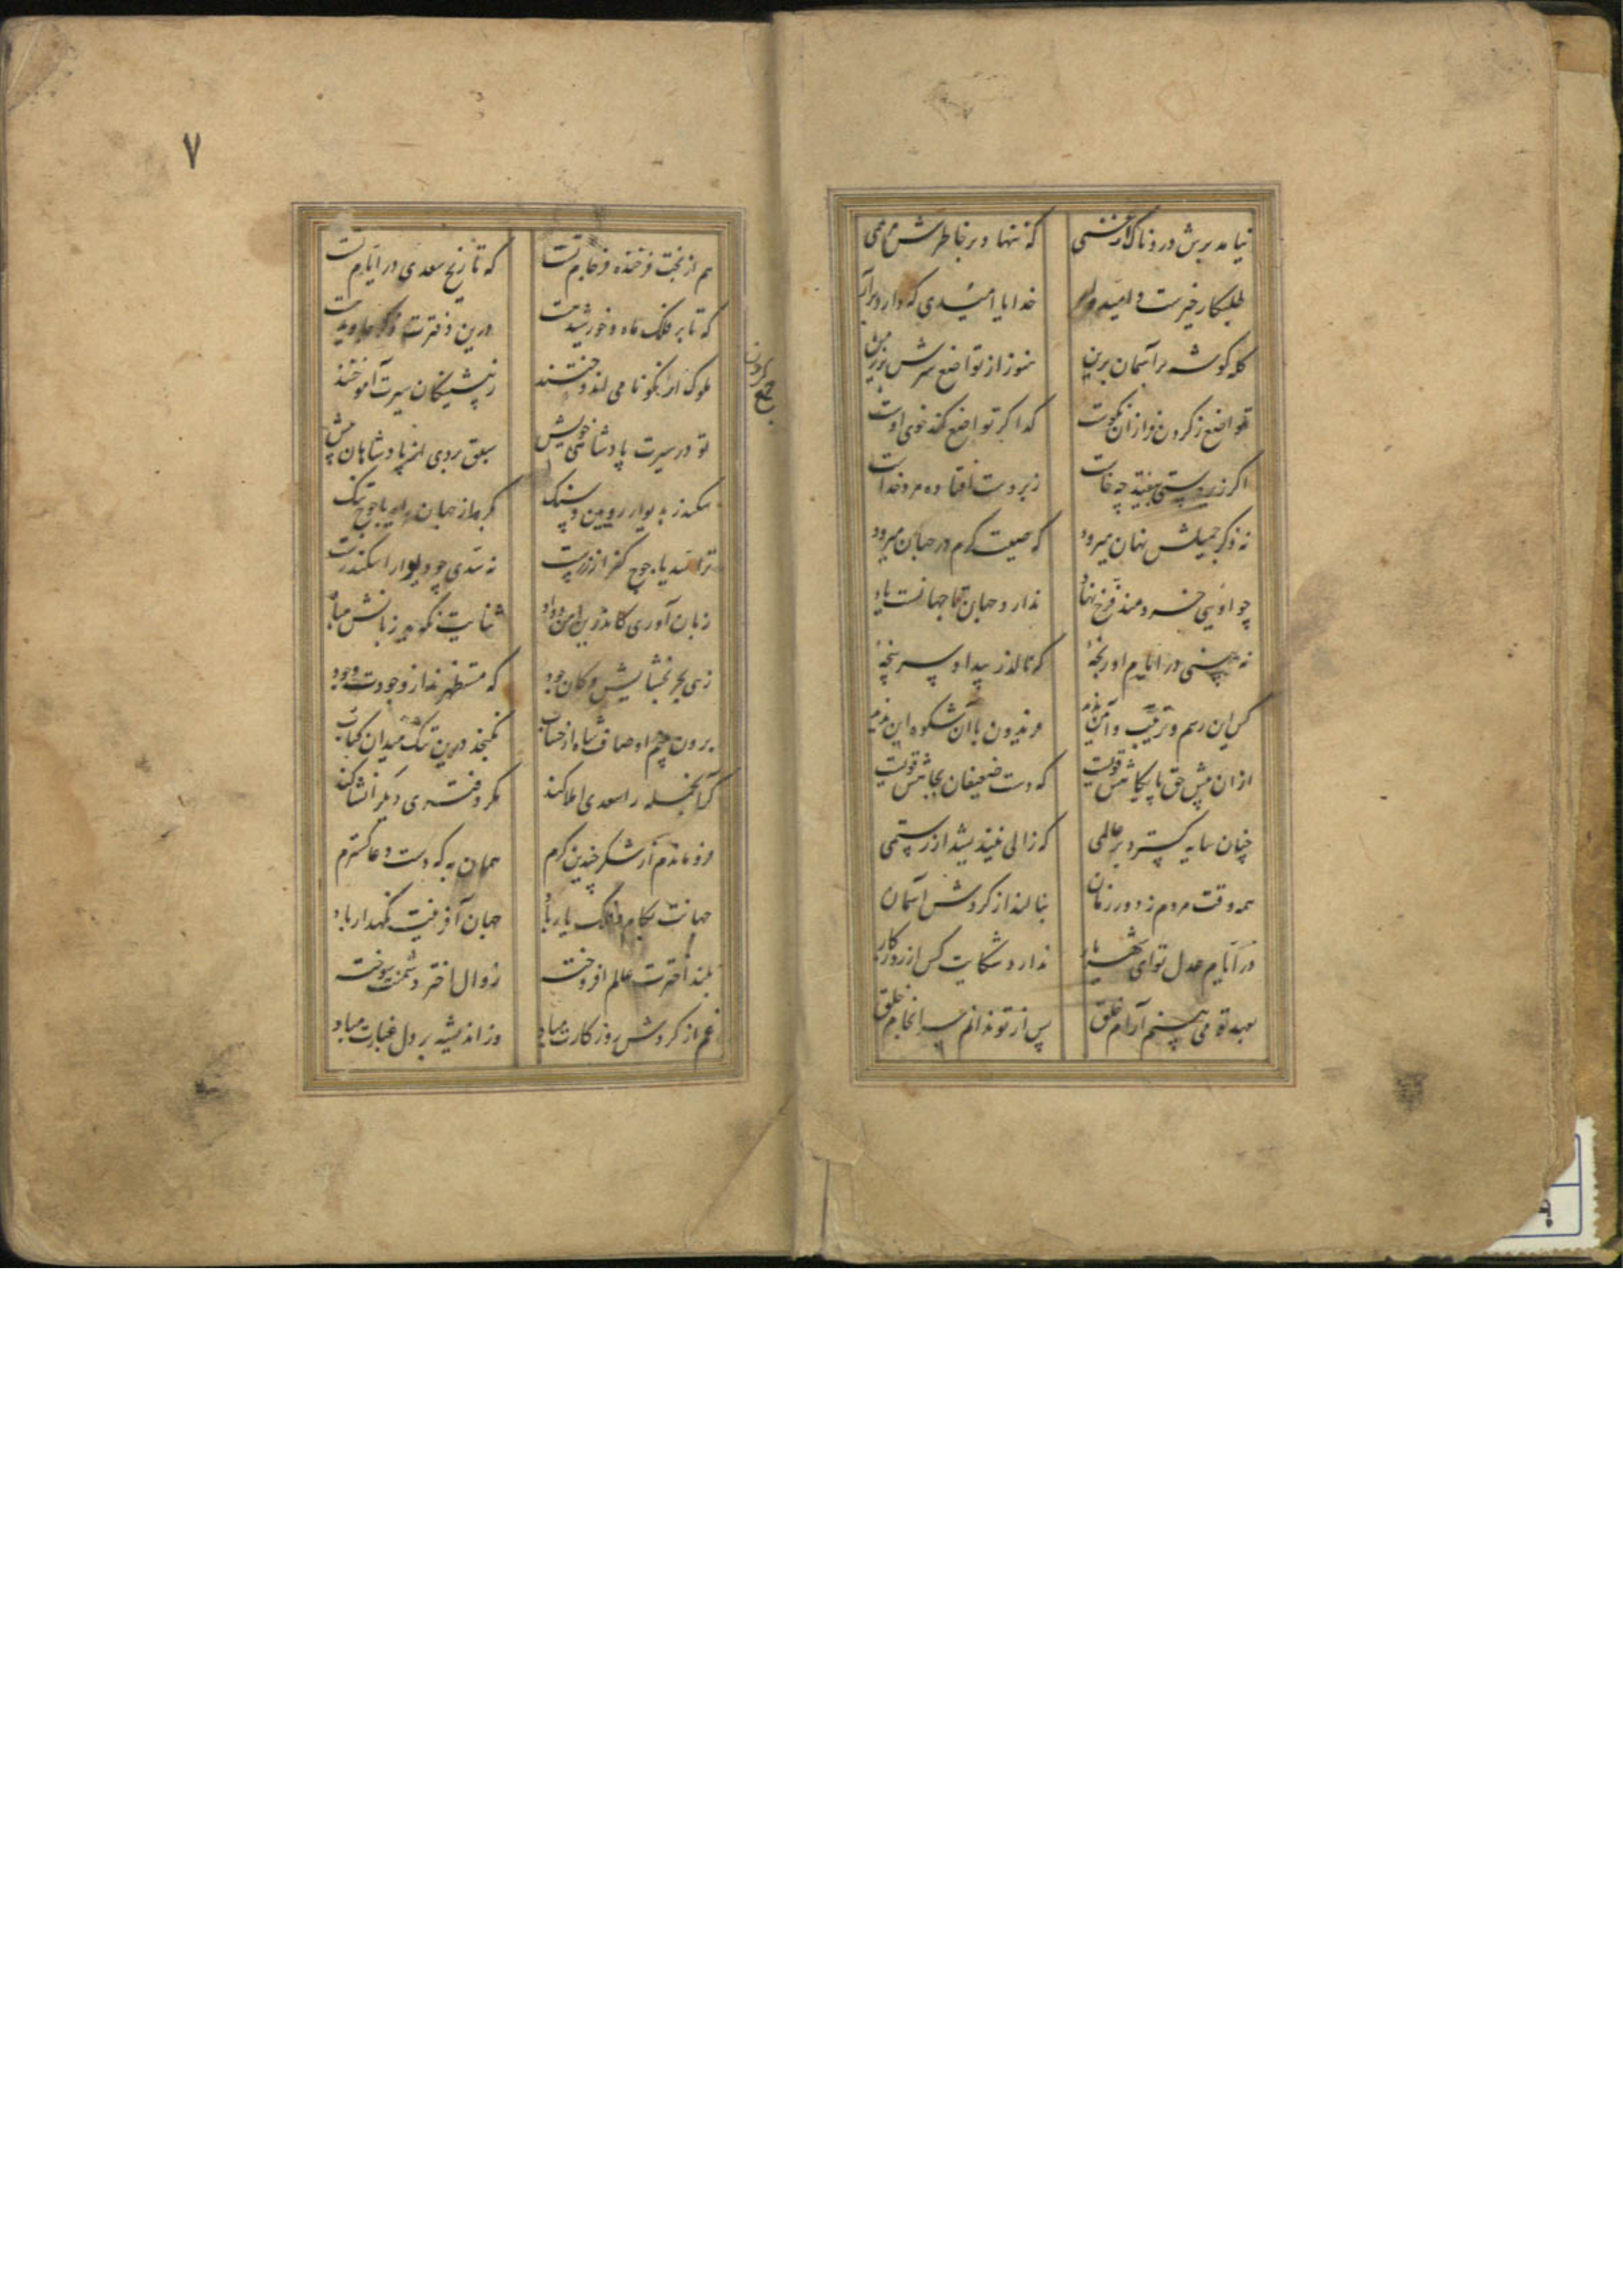 نیامد برش دردناک از غمی که ننهاد بر خاطرش مرهمی
طلبکار خیرست و امیدوار خدایا امیدی که دارد برآر
کله گوشه بر آسمان برین هنوز از تواضع سرش بر زمین
تواضع ز گردن فرازان نکوست گدا گر تواضع کند خوی اوست
اگر زیردستی بیفتد چه خاست زبردست افتاده مرد خداست
نه ذکر جمیلش نهان میرود که صیت کرم در جهان میرود
چو اویی خردمند فرخ نهاد ندارد جهان تا جهانست یاد
نه بینی در ایام او رنجهٔ که نالد ز بیداد سرپنجهٔ
کس این رسم و ترتیب و آیین ندید فریدون با آن شکوه این ندید
از آن پیش حق پایگاهش قویست که دست ضعیفان بجاهش قویست
چنان سایه گسترد بر عالمی که زالی نیندیشد از رستمی
همه وقت مردم ز دور زمان بنالند از گردش آسمان
در ایام عدل تو ای شهریار ندارد شکایت کس از روزگار
بعهد تو می بینم آرام خلق پس از تو ندانم سرانجام خلق
۷
هم از بخت فرخنده فرجام تست که تاریخ سعدی در ایام تست
که تا بر فلک ماه و خورشید هست درین دفترت ذکر جاوید هست
ملوک ار نکونامی اندوختند ز پیشینگان سیرت آموختند
تو در سیرت پادشاهی خویش سبق بردی از پادشاهان پیش
سکندر بدیوار رویین و سنگ بکرد از جهان راه یاجوج تنگ
ترا سد یاجوج کفر از زرست نه سدی چو دیوار اسکندرست
زبان آوری کاندرین امن و داد ثنایت نگوید زبانش مباد
زهی بحر بخشایش و کان جود که مستظهرند از وجودت وجود
برون بینم اوصاف شاه از حساب نگنجد درین تنگ میدان کتاب
گر آنجمله را سعدی املا کند مگر دفتری دیگر انشا کند
فرو ماندم از شکر چندین کرم همان به که دست دعا گسترم
جهانت بکام و فلک یار باد جهان آفرینت نگهدار باد
بلند اخترت عالم افروخته زوال اختر دشمنت سوخته
غم از گردش روزگارت مباد وز اندیشه بر دل غبارت مباد